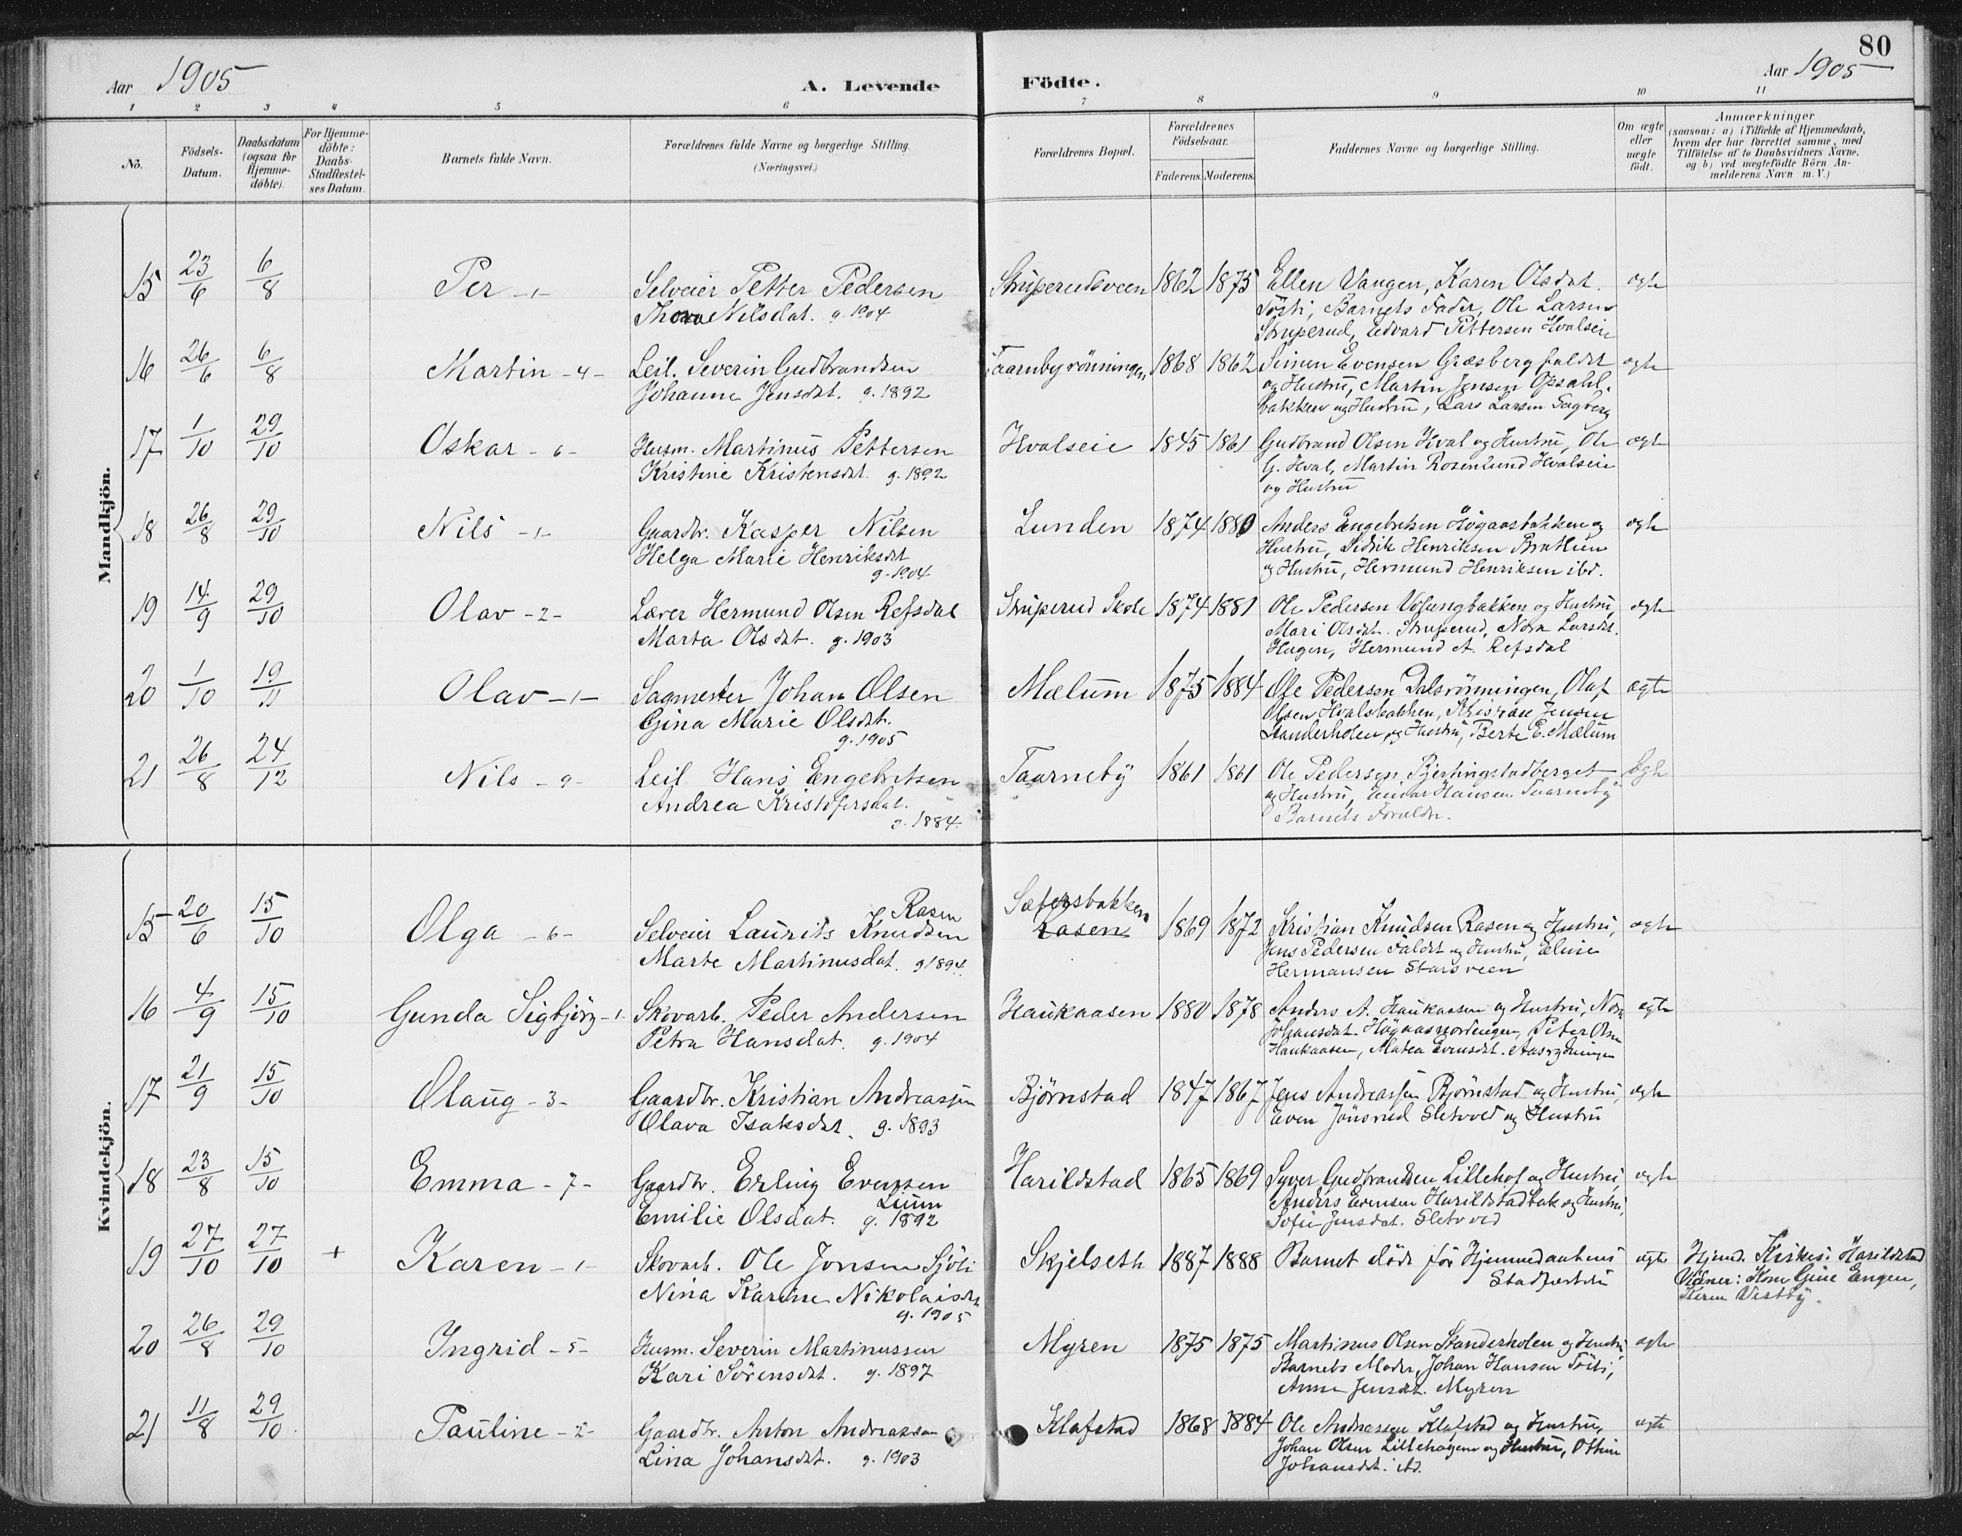 80
Aar 1905
A. Levende Födte.
Aar 1905
1 2 3 4 5 6 7 8 9 10 11
No.
Födsels-Datum.
Daabsdatum (ogsaa för Hjemme-döbte).
For Hjemme-döbte: Daabs-Stadfæstel-ses Datum.
Barnets fulde Navn.
Forældrenes fulde Navne og borgerlige Stilling.
(Næringsvei.)
Forældrenes Bopæl.
Forældrenes Födselsaar.
Faderens. Moderens.
Faddernes Navne og borgerlige Stilling.
Om ægte eller uægte födt.
Anmærkninger
(saasom: a) i Tilfælde af Hjemmedaab,
hvem der har forrettet samme, med
Tilföielse af to Daabsvidners Navne,
og b) ved uægtefödte Börn An-
melderens Navn m. V.)
Mandkjön.
15 23/6 6/8 Per -1- Selveier Petter Pedersen Struperudsveen 1862 1875 Ellen Vangen, Karen Olsdat.
Thora Nilsdat. g. 1904 Barnets Fader, Ole Larsen
Struperud, Edvard Pettersen Hvalseie
16 26/6 6/8 Martin -4- Leil. Severin Gudbrandsen Taarnbyrönningen 1868 1862 Simen Evensen Græsberg faldet ægte
Johanne Jensdat. g. 1892 og Hustru, Martin Jensen Opsahl.
bakken og Hustru, Lars Larsen Sagberg
17 1/10 29/10 Oskar -6- Husm. Martinus Pettersen Hvalseie 1845 1861 Gudbrand Olsen Hval og Hustru, Ole ægte
Kristine Kristensdat. g. 1892 G. Hval, Martin Rosenlund Hvalseie
og Hustru
18 26/8 29/10 Nils -1- Gaardbr. Kasper Nilsen Lunden 1874 1880 Anders Engebretsen Høgaasbakken og ægte
Helga Marie Henriksdat Hustru, Didrik Henriksen Brathen
g. 1904 og Hustru, Hermund Henriksen ibd.
19 14/9 29/10 Olav -2- Lærer Hermund Olsen Refsdal Struperud Skole 1874 1881 Ole Pedersen Volungbakken og Hustru, ægte
Marta Olsdat. g. 1903 Mari Olsdat. Struperud, Nora Larsdat.
Hagen, Hermund A. Refsdal
20 1/10 19/11 Olav -1- Sagmester Johan Olsen Mælum 1875 1884 Ole Pedersen Dalsrönningen, Olaf ægte
Gina Marie Olsdat. Olsen Hvalsbakken, Kristian Jensen
g. 1905 Standerholen og Hustru, Berte E. Mælum
21 26/8 24/12 Nils -9- Leil Hans Engebretsen Taarneby 1861 1861 Ole Pedersen Bjertingstadberget ægte
Andrea Kristofersdat. og Hustru, Einar Hansen Taarneby
g. 1884. Barnets Forældre.
Kvindekjön.
15 20/6 15/10 Olga -6- Selveier Laurits Knudsen Rasen Sætersbakken 1869 1872 Kristian Knudsen Rasen og Hustru, ægte
Rasen
Marte Martinusdat. g 1894. Jens Pedersen Faldet og Hustru, Eline
Hermansen Starsveen
16 4/9 15/10 Gunda Sigbjörg -1- Skovarb. Peder Andersen Haukaasen 1880 1878 Anders A. Haukaasen og Hustru, Nora ægte
Petra Hansdat. g. 1904 Johansdat. Peter Olsen
Haukaasen, Matea Evensdat. Aasrydningen
17 21/9 15/10 Olaug -3- Gaardbr. Kristian Andreassen Bjørnstad 1847 1867 Jens Andreassen Bjørnstad og Hustru, ægte
Olava Isaksdat. g. 1893 Even Jönsrud Sletvold og Hustru
18 23/8 15/10 Emma -7- Gaardbr. Erling Evensen Harildstad 1865 1869 Syver Gudbrandsen Lillehof og Hustru, ægte
Lium
Emilie Olsdat. g. 1892 Anders Evensen Harildstadbak og Hustru,
Sofie Jensdat. Sletvold
19 27/10 27/10 + Karen -1- Skovarb. Ole Jonsen Sjöli Skjelseth 1887 1888 Barnet döde för Hjemmedaabens ægte Hjemd. Kirkes. Harildstad
Nina Karine Nikolaisdat Stadfæstelse Vidner: Kone Gine Engen,
g. 1905 Karen Vestby.
20 26/8 29/10 Ingrid -5- Husm. Severin Martinussen Myren 1875 1875 Martinus Olsen Standerholen og Hustru, ægte
Kari Sörensdat. g. 1897 Barnets Moder, Johan Hansen
Anne Jensdat. Myren
21 11/8 29/10 Pauline -2- Gaardbr. Anton Andreassen Klafstad 1868 1884 Ole Andreassen Klafstad og Hustru, ægte
Lina Johansdat. g. 1903 Johan Olsen Lillehagen og Hustru,
Johansdat. ibd.